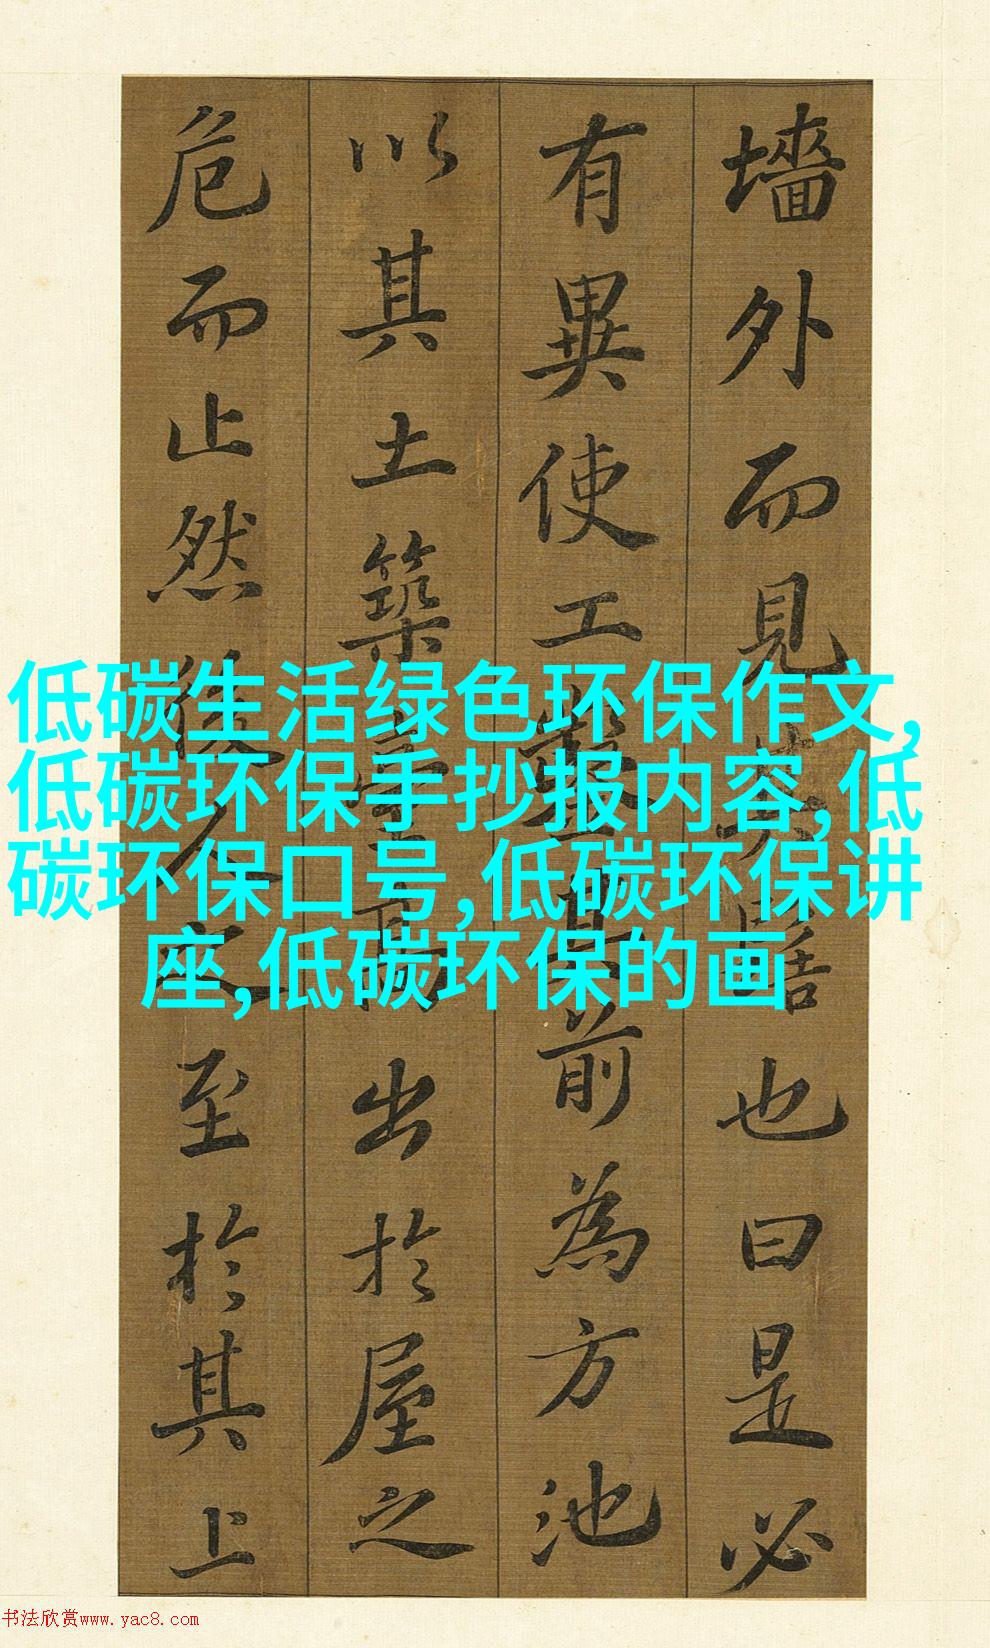 墻外而見其髻也曰是必
有異使工鑿其前為方池
以其土築臺高出於屋之
危而止然後人之至於其上
低碳生活绿色环保作文,
低碳环保手抄报内容,低
碳环保口号,低碳环保讲
座,低碳环保的画
书法欣赏www.yac8.com